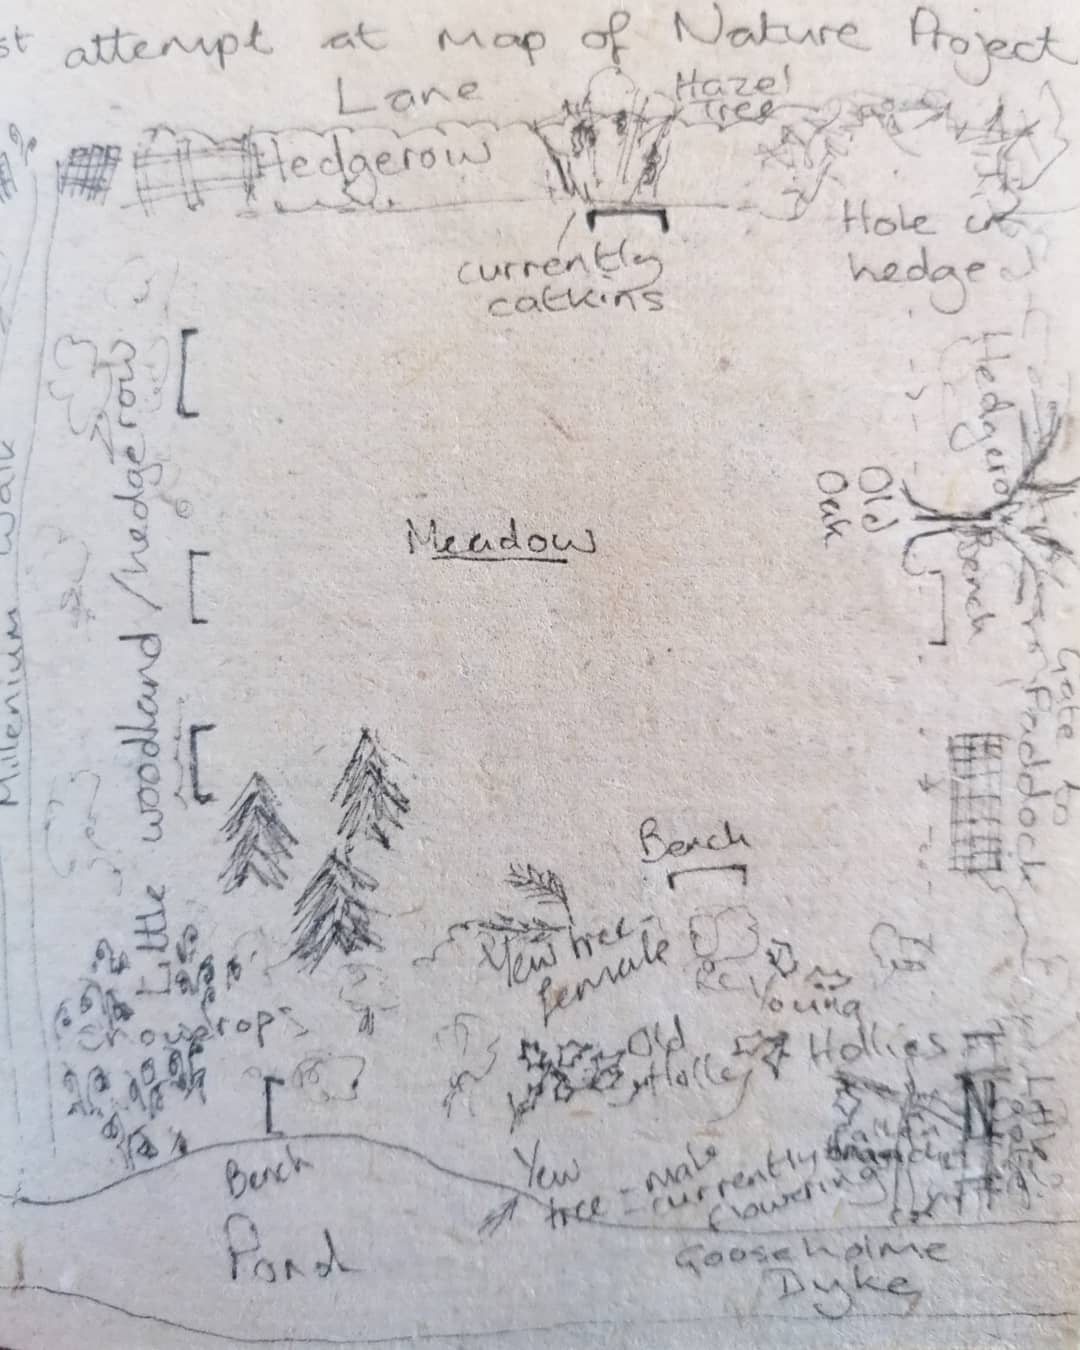 st attempt at Map of Nature Project
Lane
Hazel
Tree
Hedgerow
Hole in
hedge
currently
catkins
Hedgerow
Millenium Walk
Little woodland / hedgerow
Meadow
Old
Oak
Bench
Gate to
Paddock
Bench
Yew tree -
female
Young
Hollies
Old
Holley
Snowdrops
Bench
Yew
tree - male
currently
flowering
Little
Pond
Gooseholme
Dyke